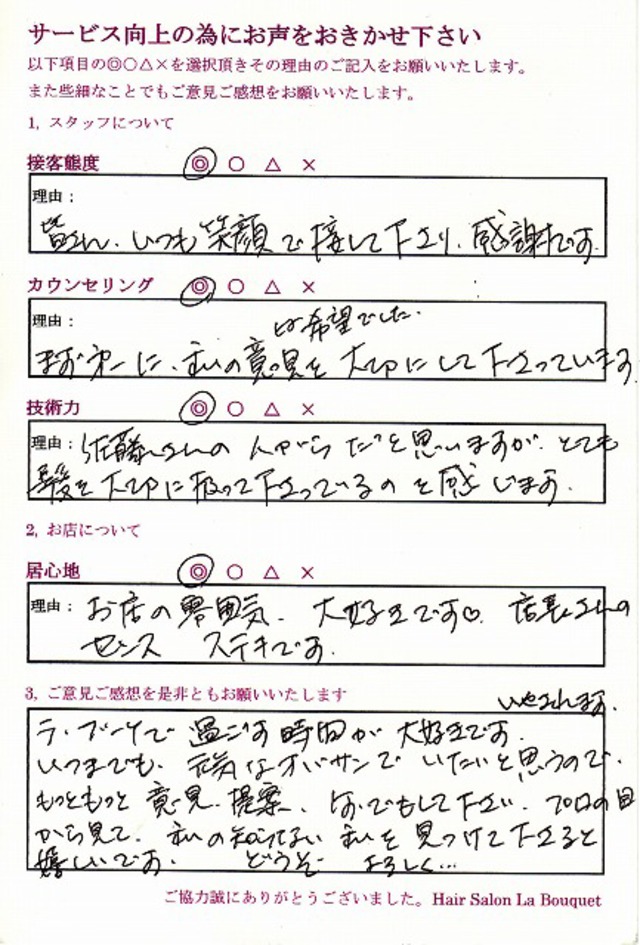 サービス向上の為にお声をおきかせ下さい
以下項目の◎○△×を選択頂きその理由のご記入をお願いいたします。
また些細なことでもご意見ご感想をお願いいたします。
1, スタッフについて
接客態度 ◎ ○ △ ×
理由：
皆さん、いつも笑顔で接して下さり、感謝です。
カウンセリング ◎ ○ △ ×
理由：
は希望でした。
まず第一に、私の意見を大切にして下さっています
技術力 ◎ ○ △ ×
理由：佐藤さんの人がらだと思いますが、とても
髪を大切に扱って下さっているのを感じます。
2, お店について
居心地 ◎ ○ △ ×
理由：お店の雰囲気、大好きです♡。店長さんの
センス ステキです。
3, ご意見ご感想を是非ともお願いいたします
ラ・ブーケで過ごす時間が大好きです。
いつまでも、元気なオバサンでいたいと思うので、
もっともっと意見、提案、何でもして下さい。プロの目
から見て、私の知らない私を見つけて下さると
嬉しいです。 どうぞ よろしく…
ご協力誠にありがとうございました。Hair Salon La Bouquet